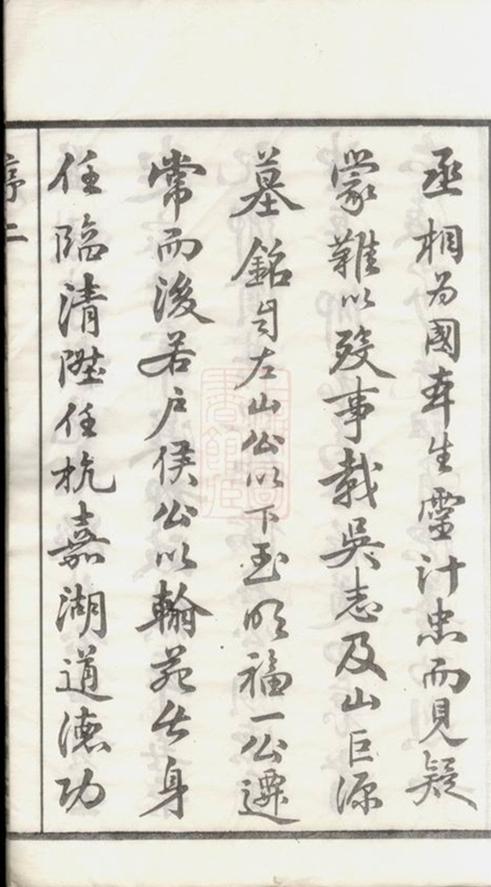 丞相為國生靈計忠而見疑
蒙難以歿事載吳志及山巨源
墓銘自左山公以下至明福一公遷
常而後若戶侯公以翰苑出身
任臨清陞任杭嘉湖道德功
序二